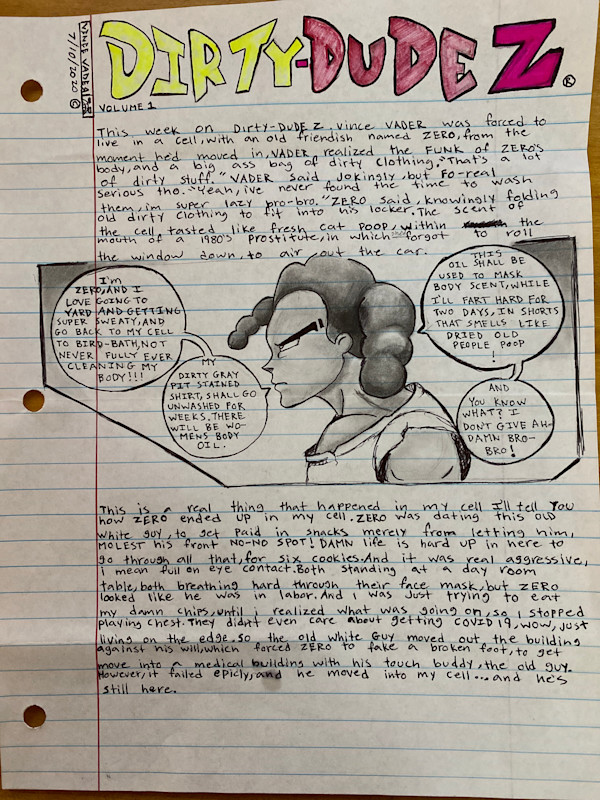 DIRTY-DUDE Z
VINCE VADER
7/10/2020 ©
®
VOLUME 1
This week on Dirty-DUDE Z, vince VADER was forced to
live in a cell, with an old friendish named ZERO, from the
moment he'd moved in, VADER realized the FUNK of ZERO'S
body, and a big ass bag of dirty clothing. "That's a lot
of dirty stuff." VADER said jokingly, but Fo-real
serious tho. "Yeah, ive never found the time to wash
them, im super lazy pro-bro." ZERO said, knowingly folding
old dirty clothing to fit into his locker. The scent of
the cell, tasted like fresh cat poop, within the
mouth of a 1980's prostitute, in which forgot to roll
the window down, to air out the car.
I'm
ZERO, AND I
LOVE GOING TO
YARD AND GETTING
SUPER SWEATY, AND
GO BACK TO MY CELL
TO BIRD-BATH, NOT
NEVER FULLY EVER
CLEANING MY
BODY!!!
MY
DIRTY GRAY
PIT STAINED
SHIRT, SHALL GO
UNWASHED FOR
WEEKS. THERE
WILL BE WO-
MENS BODY
OIL.
THIS
OIL SHALL BE
USED TO MASK
BODY SCENT, WHILE
I'LL FART HARD FOR
TWO DAYS, IN SHORTS
THAT SMELLS LIKE
DRIED OLD
PEOPLE POOP
!
AND
YOU KNOW
WHAT? I
DON'T GIVE AH-
DAMN BRO-
BRO!
This is a real thing that happened in my cell I'll tell You
how ZERO ended up in my cell. ZERO was dating this OLD
white guy, to get paid in snacks merely from letting him,
MOLEST his front NO-NO SPOT! DAMN life is hard up in here to
go through all that, for six cookies. And it was real aggressive,
i mean full on eye contact. Both standing at a day room
table, both breathing hard through their face mask, but ZERO
looked like he was in labor. And i was Just trying to eat
my damn chips, until i realized what was going on, so i stopped
playing chest. They didnt even care about getting COVID 19, wow, just
living on the edge. so the old white Guy moved out the building
against his will, which forced ZERO to fake a broken foot, to get
move into a medical building with his touch buddy, the old guy.
However, it failed epicly, and he moved into my cell... and he's
still here.